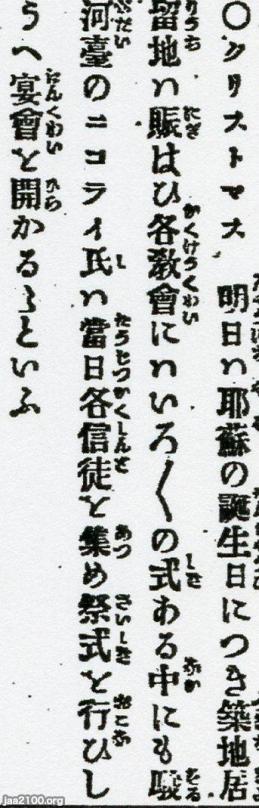 〇クリストマス　明日ハ耶蘇の誕生日につき築地居
留地ハ賑はひ各教會にハいろ〱の式ある中にも駿
河臺のニコライ氏ハ當日各信徒を集め祭式を行ひし
うへ宴會を開かるゝといふ
jaa2100.org